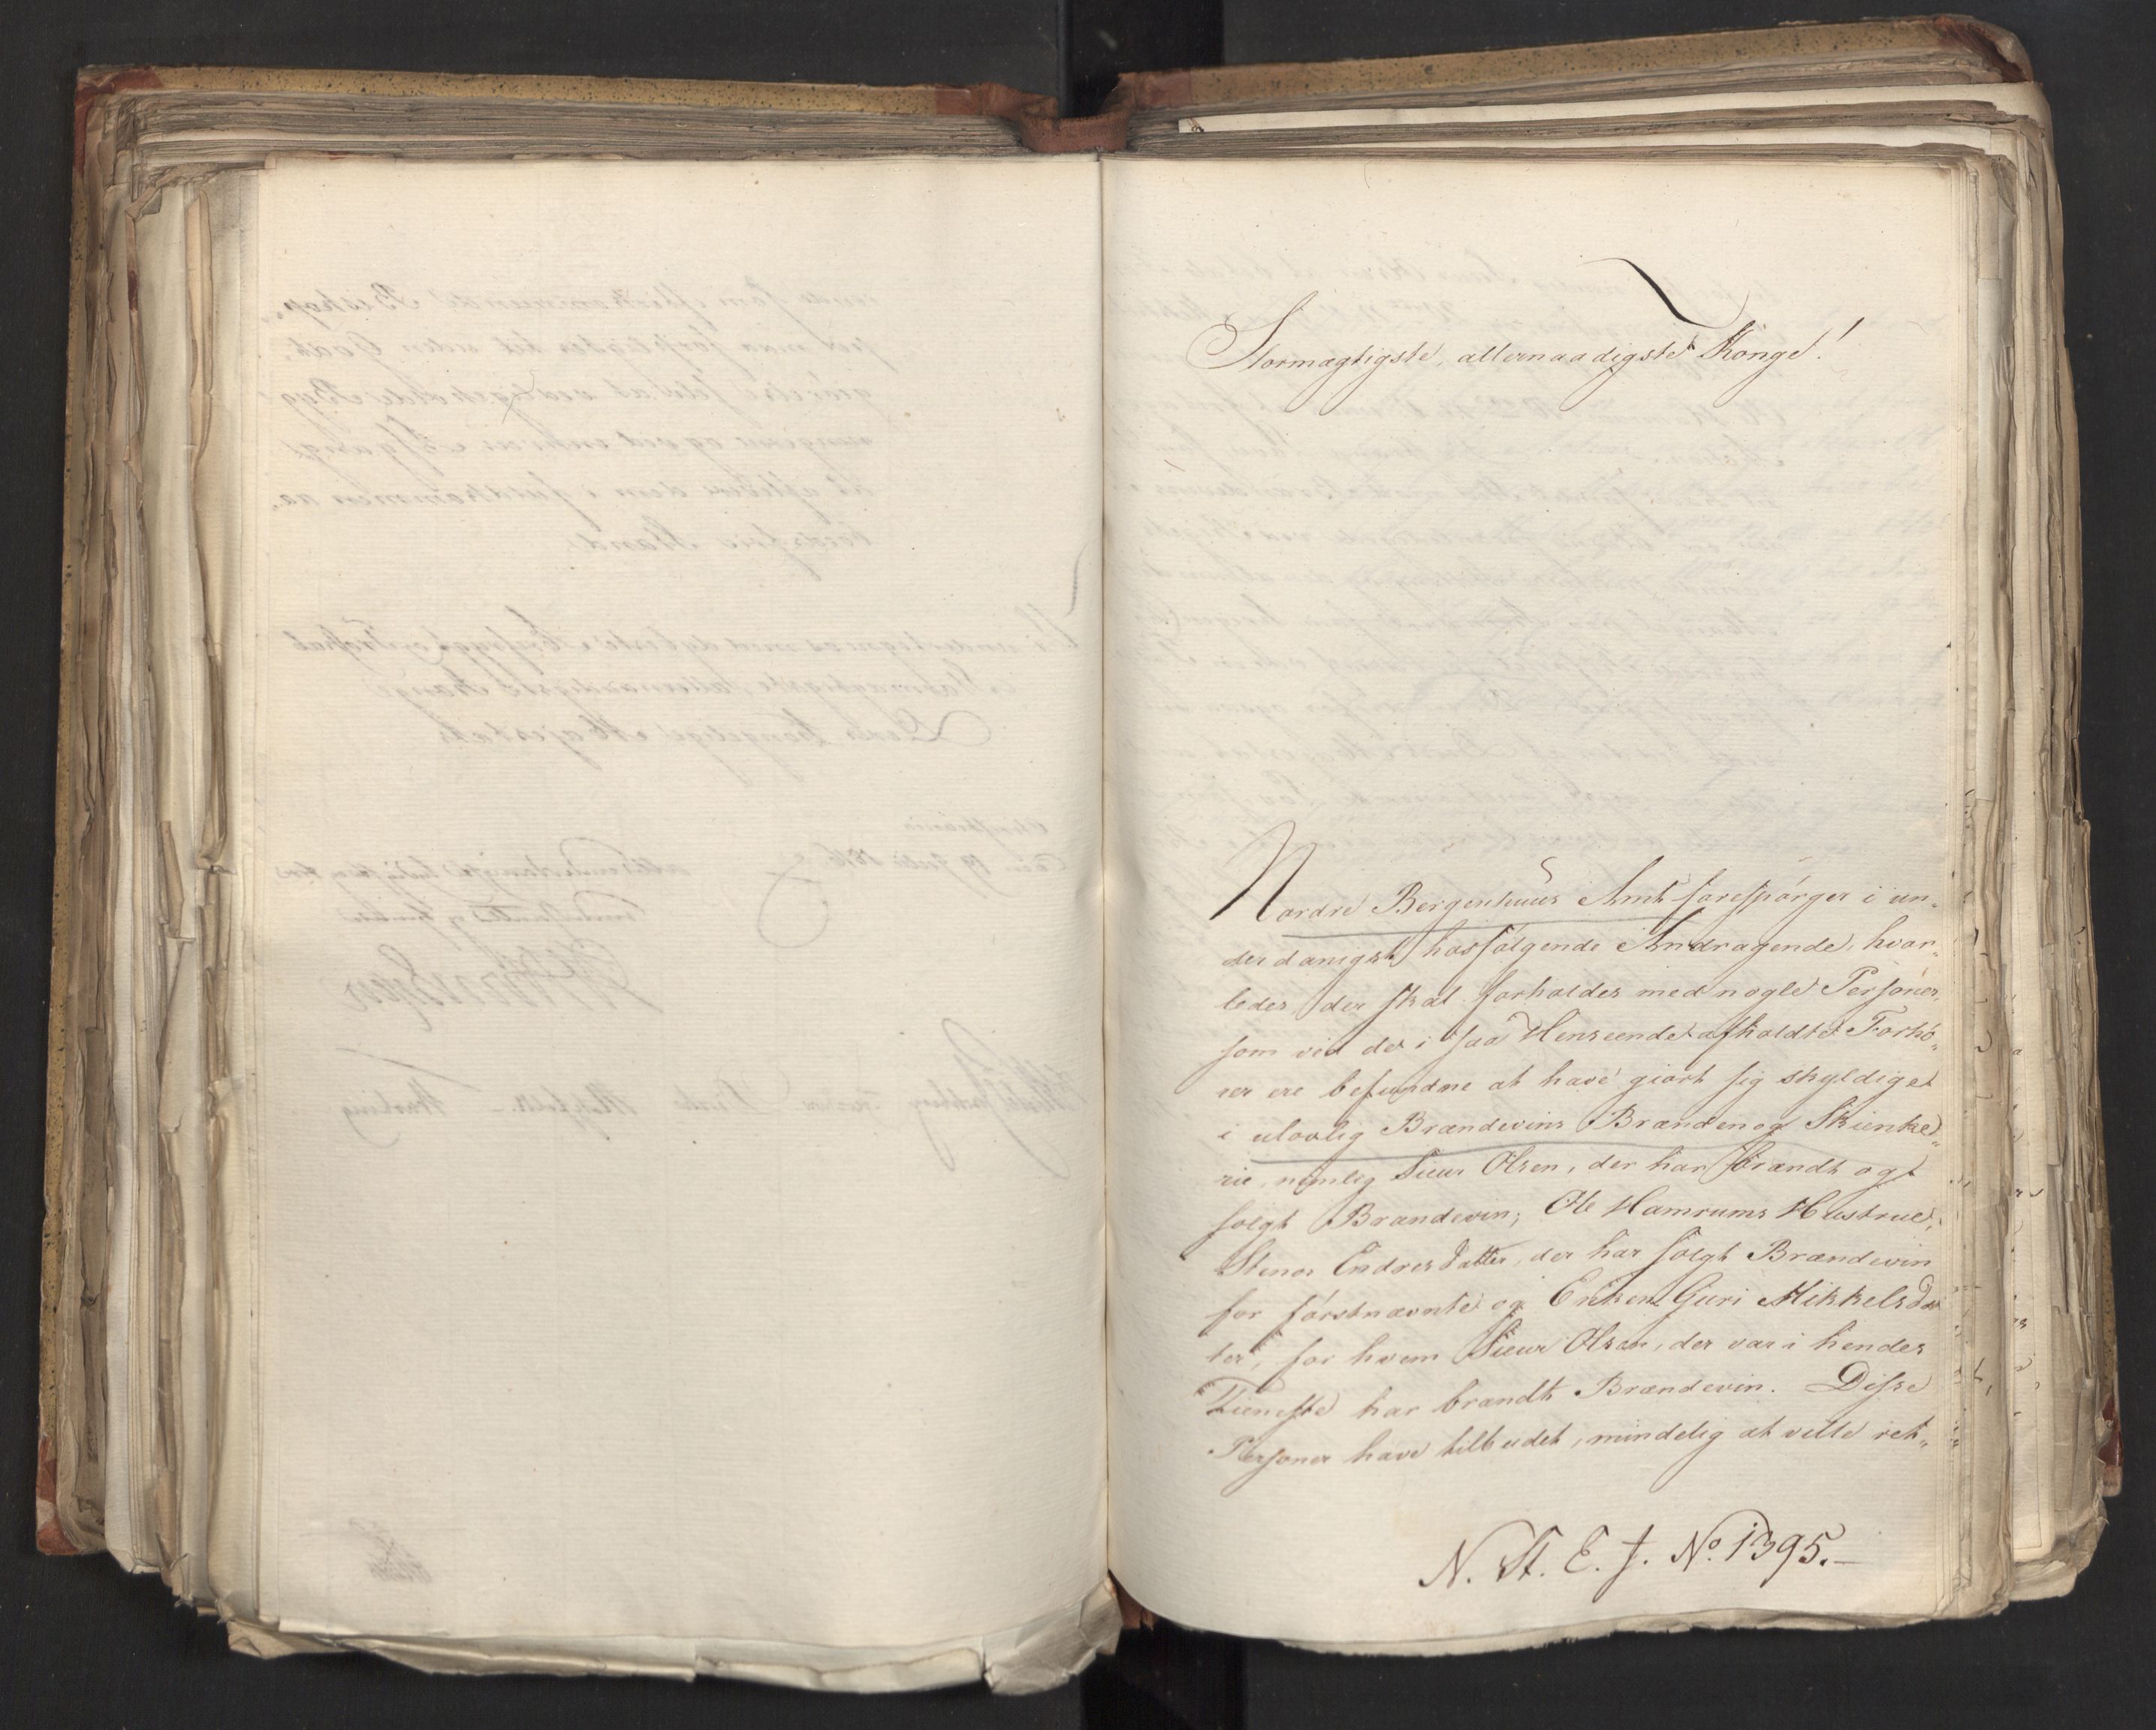 Stormægtigste, allernaadigste Konge!
Nordre Bergenhuus Amt forespörger i un„
derdanigst hosfölgende Andragende, hvor„
ledes der skal forholdes med nogle Personer,
som ved de i saa Henseende afholdte Forhö„
rer ere befundne at have giort sig skyldige
i ulovlig Brændevins Brænden og Skienke„
rie, nemlig Siur Olsen, der har brændt og
solgt Brændevin; Ole Hamrums Hustrue,
Stenor Endresdatter, der har solgt Brændevin
for förstnævnte og Enken Guri Mikkelsdat
ter, for hvem Siur Olsen, der var i hendes
Tieneste har brændt Brændevin. Disse
Personer have tilbudet, mindelig at ville ret„
N. St. E. J. No. 1395.